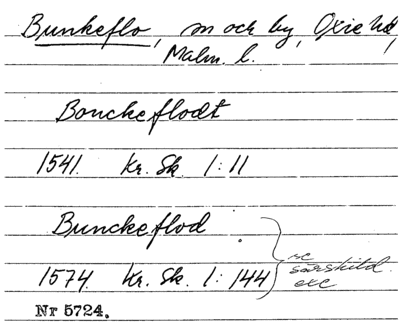 Bunkeflo, sn och by, Oxie hd,
Malm. l.
Bonckeflodt
1541. Kr. Sk. 1:11
Bunckeflod
1574. Kr. Sk. 1:144
särskild
exc
Nr 5724.